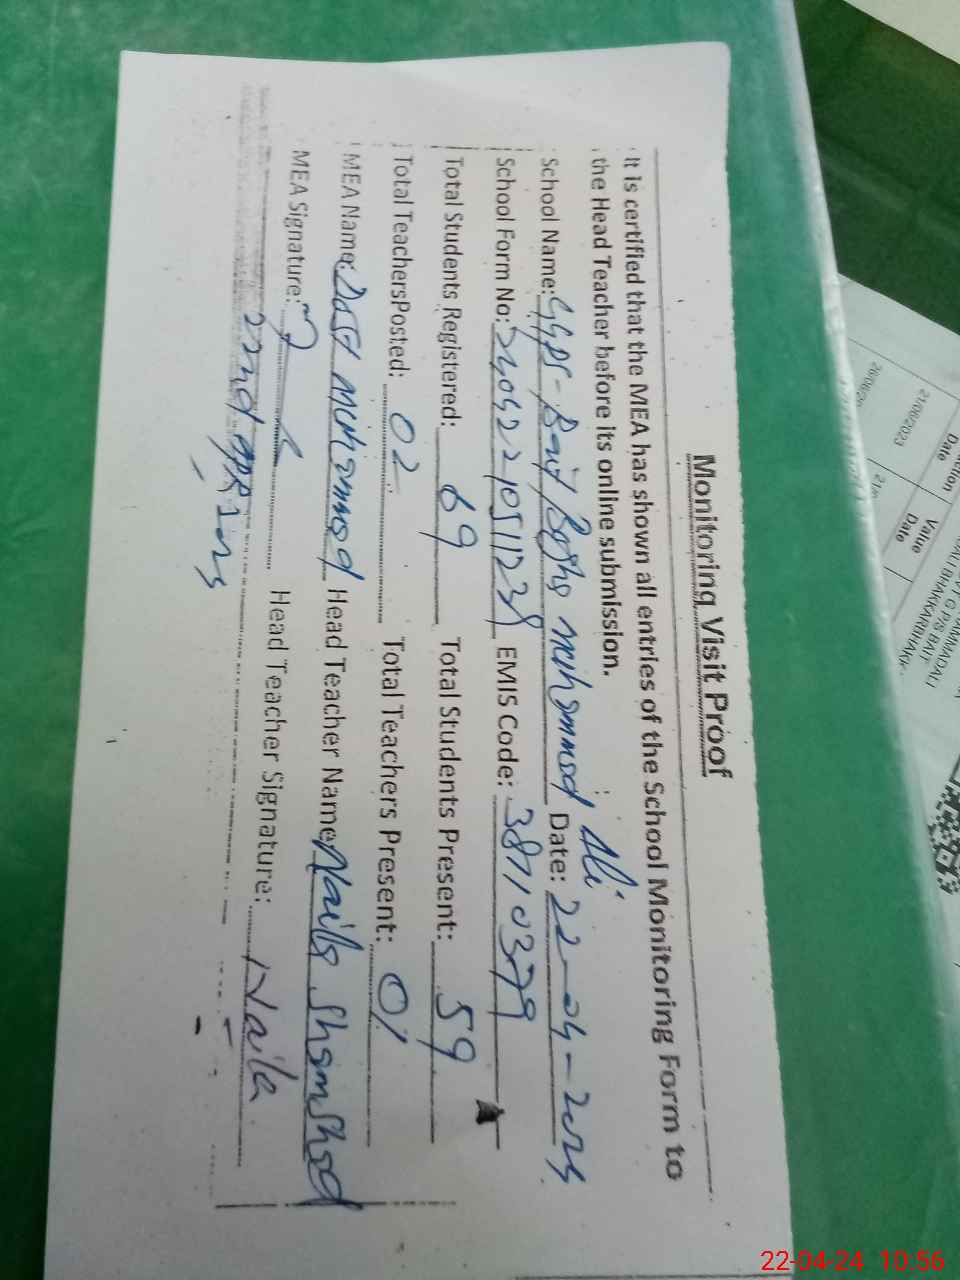 Monitoring Visit Proof
It is certified that the MEA has shown all entries of the School Monitoring Form to
the Head Teacher before its online submission.
School Name: GGPS - Bait Bagha Muhammad Ali Date: 22-04-2024
School Form No: EMIS Code: 38710379
Total Students Registered: 69 Total Students Present: 59
Total TeachersPosted: 02 Total Teachers Present: 01
MEA Name: Dost Muhammad Head Teacher Name Naila Shamshad
MEA Signature: Head Teacher Signature: Naila
22nd
Date
Value
Date
21/06/2023
22-04-24 10:56